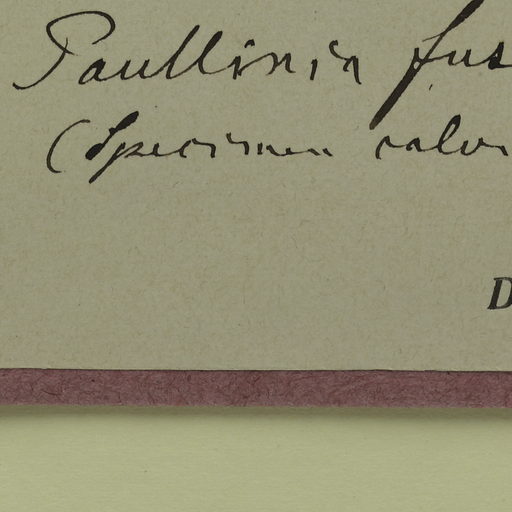 Paullinia fus
(Specimen calv
D